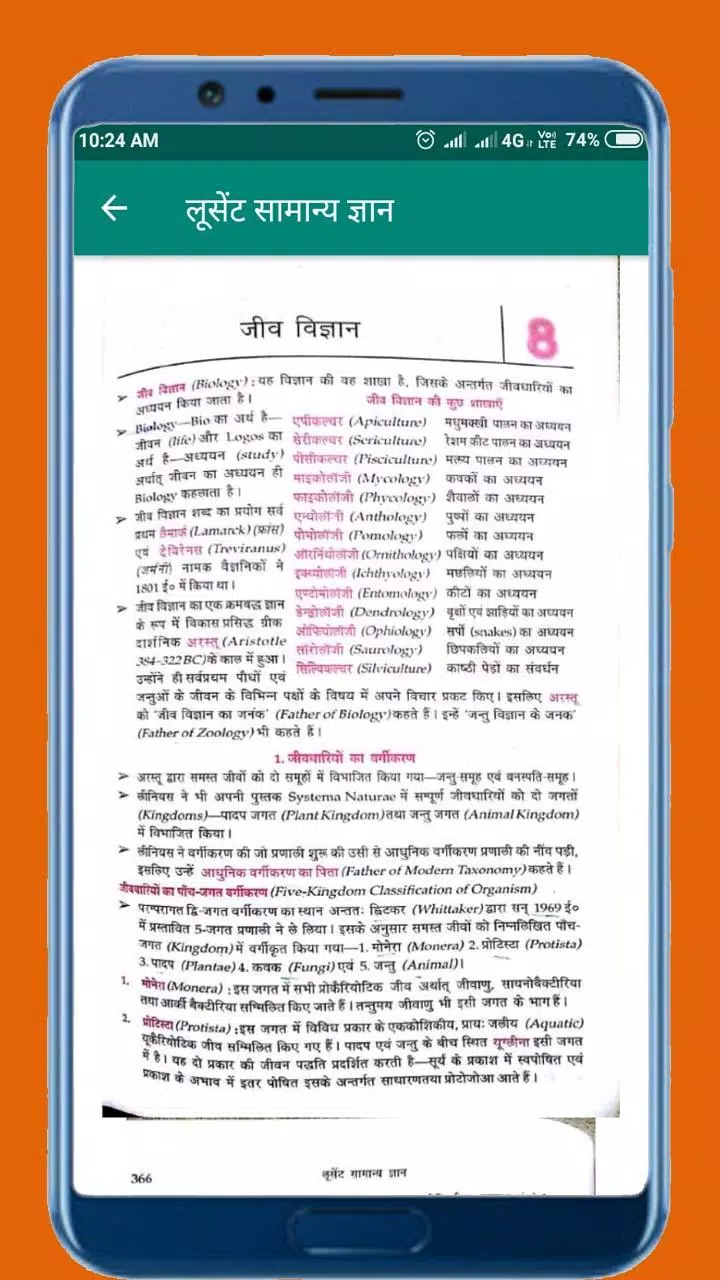 10:24 AM 4G VoLTE 74%
लूसेंट सामान्य ज्ञान
जीव विज्ञान 8
➢ जीव विज्ञान (Biology) : यह विज्ञान की वह शाखा है, जिसके अन्तर्गत जीवधारियों का
अध्ययन किया जाता है।
➢ Biology—Bio का अर्थ है—
जीवन (life) और Logos का
अर्थ है—अध्ययन (study)
अर्थात् जीवन का अध्ययन ही
Biology कहलाता है।
➢ जीव विज्ञान शब्द का प्रयोग सर्व
प्रथम लैमार्क (Lamarck) (फ्रांस)
एवं ट्रेविरेनस (Treviranus)
(जर्मनी) नामक वैज्ञनिकों ने
1801 ई० में किया था।
➢ जीव विज्ञान का एक क्रमबद्ध ज्ञान
के रूप में विकास प्रसिद्ध ग्रीक
दार्शनिक अरस्तू (Aristotle
384-322 BC) के काल में हुआ।
उन्होंने ही सर्वप्रथम पौधों एवं
जीव विज्ञान की कुछ शाखाएँ
एपीकल्चर (Apiculture) मधुमक्खी पालन का अध्ययन
सेरीकल्चर (Sericulture) रेशम कीट पालन का अध्ययन
पीसीकल्चर (Pisciculture) मत्स्य पालन का अध्ययन
माइकोलॉजी (Mycology) कवकों का अध्ययन
फाइकोलॉजी (Phycology) शैवालों का अध्ययन
एन्थोलॉजी (Anthology) पुष्पों का अध्ययन
पोमोलॉजी (Pomology) फलों का अध्ययन
ऑरनिथोलॉजी (Ornithology) पक्षियों का अध्ययन
इक्थ्योलॉजी (Ichthyology) मछलियों का अध्ययन
एण्टोमोलॉजी (Entomology) कीटों का अध्ययन
डेन्ड्रोलॉजी (Dendrology) वृक्षों एवं झाड़ियों का अध्ययन
ओफियोलॉजी (Ophiology) सर्पों (snakes) का अध्ययन
सॉरोलॉजी (Saurology) छिपकलियों का अध्ययन
सिल्विकल्चर (Silviculture) काष्ठी पेड़ों का संवर्धन
जन्तुओं के जीवन के विभिन्न पक्षों के विषय में अपने विचार प्रकट किए। इसलिए अरस्तू
को 'जीव विज्ञान का जनक' (Father of Biology) कहते हैं। इन्हें 'जन्तु विज्ञान के जनक'
(Father of Zoology) भी कहते हैं।
1. जीवधारियों का वर्गीकरण
➢ अरस्तू द्वारा समस्त जीवों को दो समूहों में विभाजित किया गया—जन्तु-समूह एवं वनस्पति-समूह।
➢ लीनियस ने भी अपनी पुस्तक Systema Naturae में सम्पूर्ण जीवधारियों को दो जगतों
(Kingdoms)—पादप जगत (Plant Kingdom) तथा जन्तु जगत (Animal Kingdom)
में विभाजित किया।
➢ लीनियस ने वर्गीकरण की जो प्रणाली शुरू की उसी से आधुनिक वर्गीकरण प्रणाली की नींव पड़ी,
इसलिए उन्हें आधुनिक वर्गीकरण का पिता (Father of Modern Taxonomy) कहते हैं।
जीवधारियों का पाँच-जगत वर्गीकरण (Five-Kingdom Classification of Organism)
➢ परम्परागत द्वि-जगत वर्गीकरण का स्थान अन्ततः ह्विटकर (Whittaker) द्वारा सन् 1969 ई०
में प्रस्तावित 5-जगत प्रणाली ने ले लिया। इसके अनुसार समस्त जीवों को निम्नलिखित पाँच-
जगत (Kingdom) में वर्गीकृत किया गया—1. मोनेरा (Monera) 2. प्रोटिस्टा (Protista)
3. पादप (Plantae) 4. कवक (Fungi) एवं 5. जन्तु (Animal)।
1. मोनेरा (Monera) : इस जगत में सभी प्रोकैरियोटिक जीव अर्थात् जीवाणु, सायनोबैक्टीरिया
तथा आर्की बैक्टीरिया सम्मिलित किए जाते हैं। तन्तुमय जीवाणु भी इसी जगत के भाग हैं।
2. प्रोटिस्टा (Protista) : इस जगत में विविध प्रकार के एककोशिकीय, प्रायः जलीय (Aquatic)
यूकैरियोटिक जीव सम्मिलित किए गए हैं। पादप एवं जन्तु के बीच स्थित यूग्लीना इसी जगत
में है। यह दो प्रकार की जीवन पद्धति प्रदर्शित करती है—सूर्य के प्रकाश में स्वपोषित एवं
प्रकाश के अभाव में इतर पोषित इसके अन्तर्गत साधारणतया प्रोटोजोआ आते हैं।
366 लूसेंट सामान्य ज्ञान